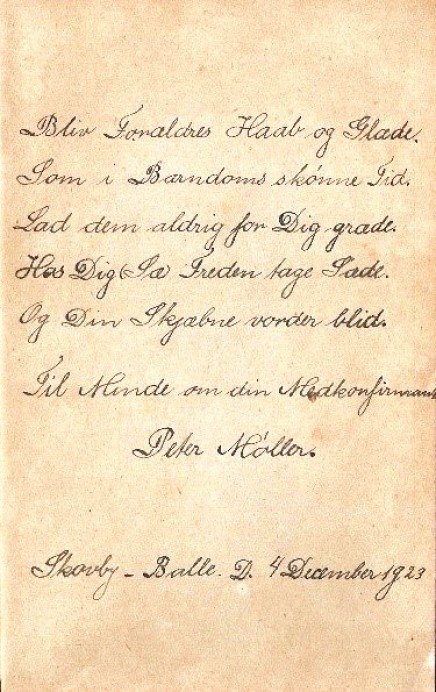 Bliv Forældres Haab og Glæde.
Som i Barndoms skønne Tid.
Lad dem aldrig for Dig græde.
Hos Dig Sæ Freden tage Sæde.
Og Din Skjæbne vorder blid.
Til Minde om din Medkonfirmant
Peter Møller.
Skovby - Balle. D. 4 December 1923